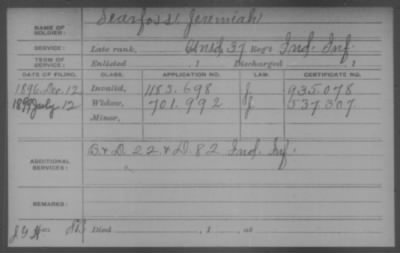 NAME OF SOLDIER: Searfoss, Jeremiah
SERVICE: Late rank, Unsd, 37 Reg't Ind. Inf.
TERM OF SERVICE: Enlisted , 1 Discharged , 1
DATE OF FILING. CLASS. APPLICATION NO. LAW. CERTIFICATE NO.
1896, Dec. 12 Invalid, 1183.698 J. 935.078
1899 July 12 Widow, 701.992 J. 537307
Minor,
ADDITIONAL SERVICES: B. & D. 22 & D. 82 Ind. Inf.
REMARKS:
Died , 1 , at